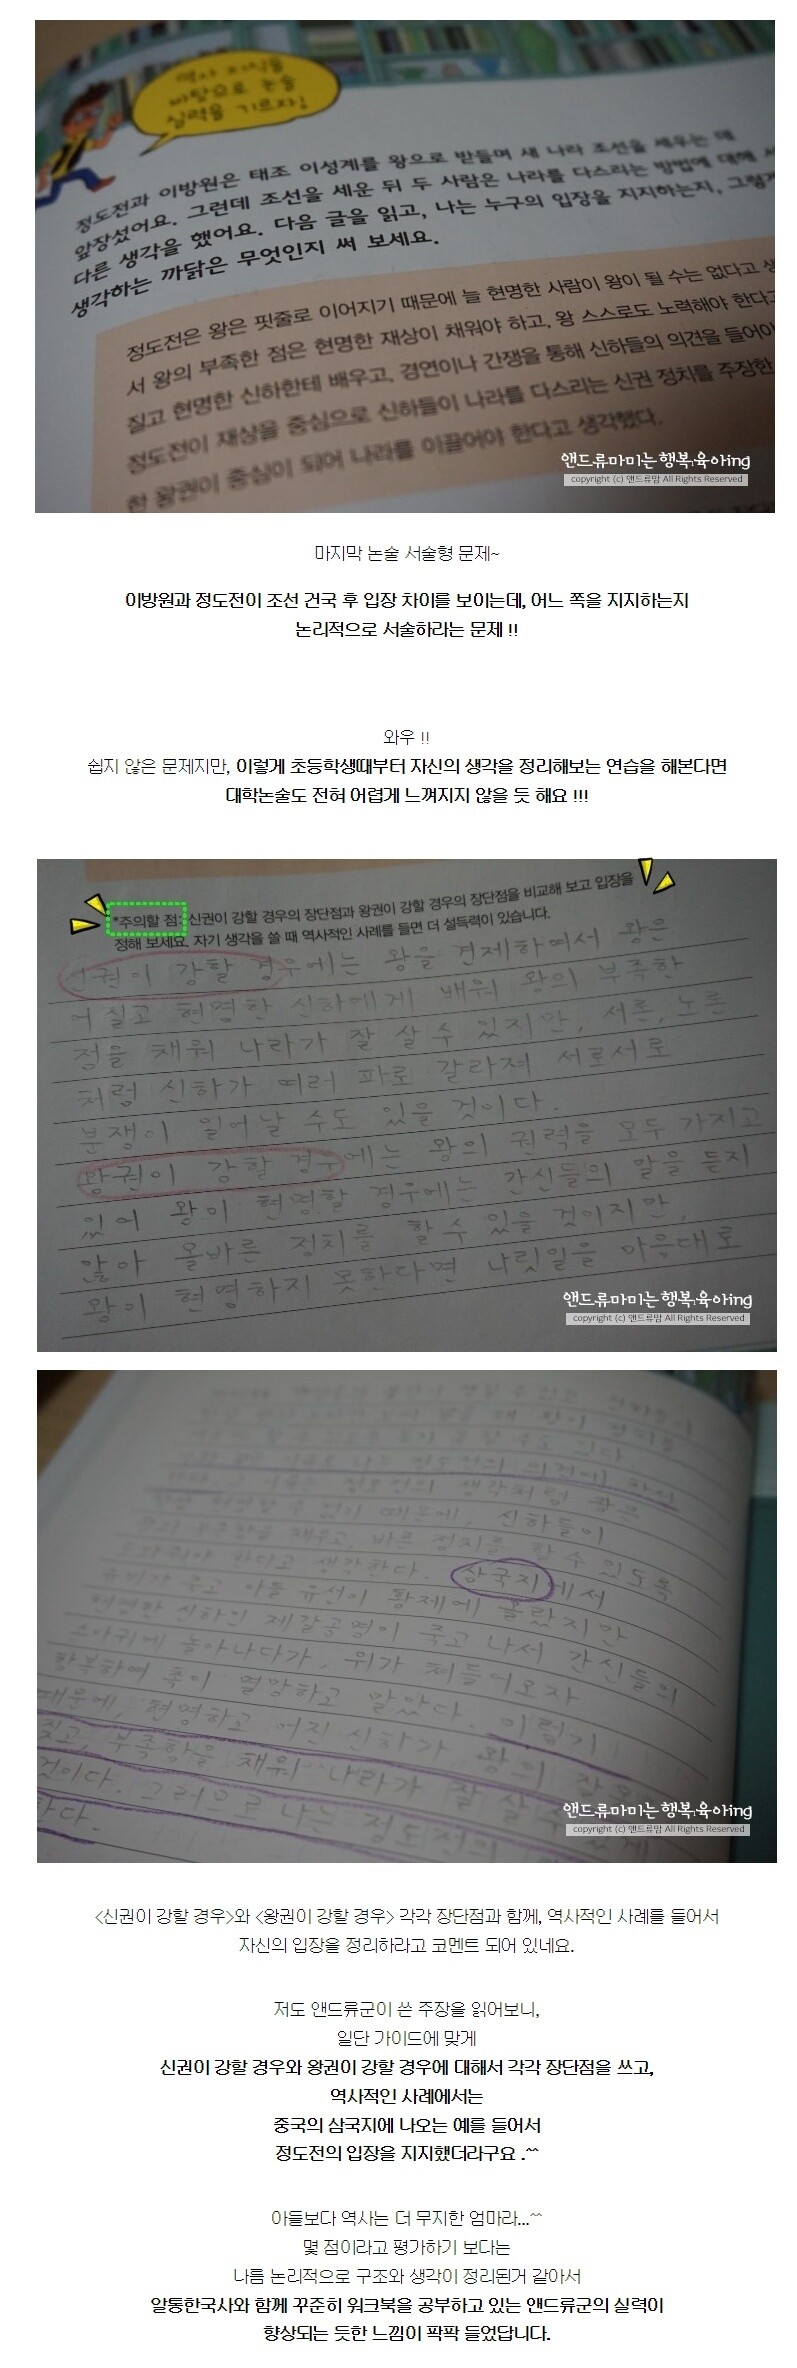 역사 지식을
바탕으로 논술
실력을 기르자!
정도전과 이방원은 태조 이성계를 왕으로 받들며 새 나라 조선을 세우는 데
앞장섰어요. 그런데 조선을 세운 뒤 두 사람은 나라를 다스리는 방법에 대해 서
다른 생각을 했어요. 다음 글을 읽고, 나는 누구의 입장을 지지하는지, 그렇게
생각하는 까닭은 무엇인지 써 보세요.
정도전은 왕은 핏줄로 이어지기 때문에 늘 현명한 사람이 왕이 될 수는 없다고 생
서 왕의 부족한 점은 현명한 재상이 채워야 하고, 왕 스스로도 노력해야 한다고
질고 현명한 신하한테 배우고, 경연이나 간쟁을 통해 신하들의 의견을 들어야
정도전이 재상을 중심으로 신하들이 나라를 다스리는 신권 정치를 주장한
한 왕권이 중심이 되어 나라를 이끌어야 한다고 생각했다.
앤드류마미는행복육아ing
copyright (c) 앤드류맘 All Rights Reserved
마지막 논술 서술형 문제~
이방원과 정도전이 조선 건국 후 입장 차이를 보이는데, 어느 쪽을 지지하는지
논리적으로 서술하라는 문제 !!
와우 !!
쉽지 않은 문제지만, 이렇게 초등학생때부터 자신의 생각을 정리해보는 연습을 해본다면
대학논술도 전혀 어렵게 느껴지지 않을 듯 해요 !!!
*주의할 점: 신권이 강할 경우의 장단점과 왕권이 강할 경우의 장단점을 비교해 보고 입장을
정해 보세요. 자기 생각을 쓸 때 역사적인 사례를 들면 더 설득력이 있습니다.
신권이 강할 경우에는 왕을 견제하여서 왕은
어질고 현명한 신하에게 배워 왕의 부족한
점을 채워 나라가 잘 살 수 있지만, 서론, 노론
처럼 신하가 여러 파로 갈라져 서로서로
분쟁이 일어날 수도 있을 것이다.
왕권이 강할 경우에는 왕의 권력을 모두 가지고
있어 왕이 현명할 경우에는 간신들의 말을 듣지
않아 올바른 정치를 할 수 있을 것이지만,
왕이 현명하지 못한다면 나랏일을 마음대로
앤드류마미는행복육아ing
copyright (c) 앤드류맘 All Rights Reserved
나는 정도전의 의견에
정도전의 생각처럼 왕은
현명할 수 없기 때문에, 신하들이
부족함을 채우고, 바른 정치를 할 수 있도록
도와줘야 한다고 생각한다. 삼국지에서
유비가 죽고 아들 유선이 황제에 올랐지만
현명한 신하인 제갈공명이 죽고 나서 간신들의
손아귀에 놀아나다가, 위가 쳐들어오자
항복하여 촉이 멸망하고 말았다. 이렇기
때문에, 현명하고 어진 신하가 왕이
짖고, 부족함을 채워 나라가 잘 살
것이다. 그러므로 나는 정도전
한다.
앤드류마미는행복육아ing
copyright (c) 앤드류맘 All Rights Reserved
<신권이 강할 경우>와 <왕권이 강할 경우> 각각 장단점과 함께, 역사적인 사례를 들어서
자신의 입장을 정리하라고 코멘트 되어 있네요.
저도 앤드류군이 쓴 주장을 읽어보니,
일단 가이드에 맞게
신권이 강할 경우와 왕권이 강할 경우에 대해서 각각 장단점을 쓰고,
역사적인 사례에서는
중국의 삼국지에 나오는 예를 들어서
정도전의 입장을 지지했더라구요 .^^
아들보다 역사는 더 무지한 엄마라...^^
몇 점이라고 평가하기 보다는
나름 논리적으로 구조와 생각이 정리된거 같아서
알통한국사와 함께 꾸준히 워크북을 공부하고 있는 앤드류군의 실력이
향상되는 듯한 느낌이 팍팍 들었답니다.